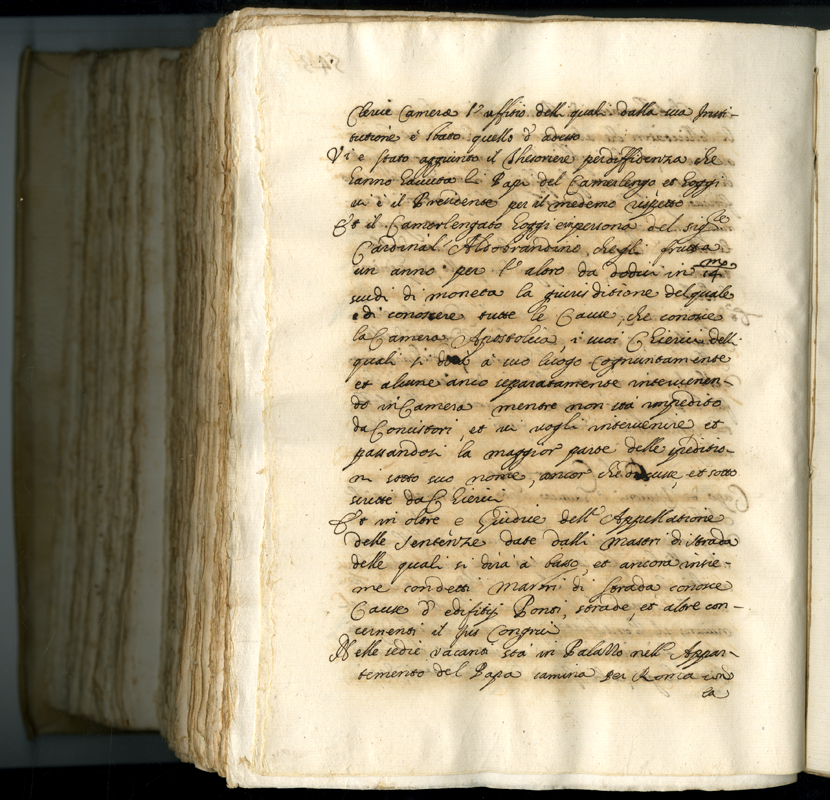 Clerici Camerae l'uffitio delli quali dalla sua Insti-
tutione è stato quello d'adesso
Vi è stato aggiunto il Thesoriere per diffidenza che
hanno havuta li Papi del Camerlengo et hoggi
vi è il Presidente per il medemo rispetto
Et il Camerlengato hoggi è in persona del sig.re
Cardinal Aldobrandino, che gli frutta
un anno per l'altro da dodici in
scudi di moneta la giurisditione del quale
è di conoscere tutte le Cause, che conosce
la Camera Apostolica, i suoi Chierici delli
quali si dirà a suo luogo Cogniuntamente
et alcune anco separatamente intervenen-
do in Camera mentre non sia impedito
da Concistori, et vi vogli intervenire et
passandosi la maggior parte delle speditio-
ni sotto suo nome, ancor che discusse, et sotto
scritte da Chierici
Et in oltre è Giudice dell'Appellatione
delle Sentenze date dalli Mastri di strada
delle quali si dirà a basso, et ancora insie-
me con detti Mastri di strada conosce
Cause d'edifitij Ponti, strade, et altre con-
cernenti il Jus Congrui
Nelle sedie vacanti sta in Palazzo nell'Appar-
temento del Papa camina per Roma con
la